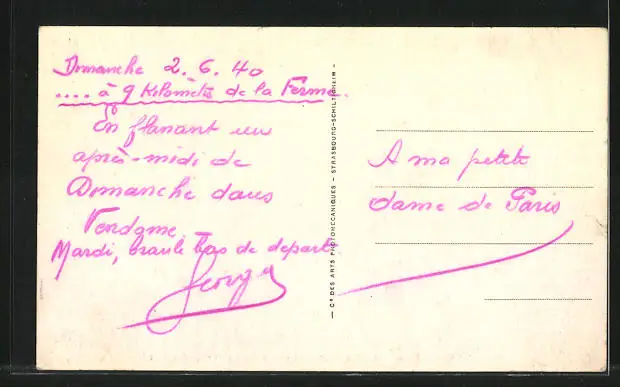 Dimanche 2.6.40
.... à 9 Kilomètres de la Ferme.
En flanant un
après-midi de
Dimanche dans
Vendome.
Mardi, branle bas de depart.
Georges
— Cie DES ARTS PHOTOMECANIQUES - STRASBOURG-SCHILTIGHEIM -
A ma petite
dame de Paris